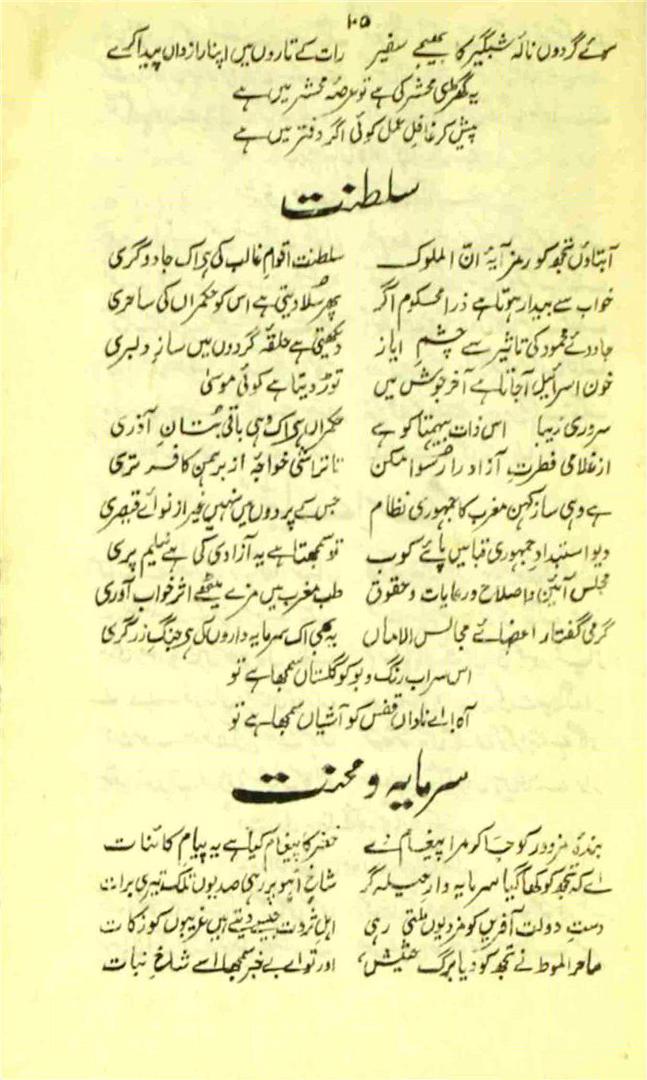 ۱۰۵
سوئے گردوں نالۂ شبگیر کا بھیجے سفیر رات کے تاروں میں اپنا رازداں پیدا کرے
یہ گھڑی محشر کی ہے تو عرصۂ محشر میں ہے
پیش کر غافل عمل کوئی اگر دفتر میں ہے
سلطنت
آ بتاؤں تجھ کو رمز آیۂ انّ الملوک سلطنت اقوامِ غالب کی ہے اک جادوگری
خواب سے بیدار ہوتا ہے ذرا محکوم اگر پھر سُلا دیتی ہے اس کو حکمراں کی ساحری
جادوئے محمود کی تاثیر سے چشمِ ایاز دیکھتی ہے حلقۂ گردوں میں سازِ دلبری
خون اسرائیل آجاتا ہے آخر جوش میں توڑ دیتا ہے کوئی موسیٰ
سروری زیبا اس ذات بیہمتا کو ہے حکمراں ہے اک وہی باقی بتانِ آذری
از غلامی فطرتِ آزاد را رُسوا مکن تا تراشی خواجۂ از برہمن کافر تری
ہے وہی ساز کہن مغرب کا جمہوری نظام جس کے پردوں میں نہیں غیر از نوائے قیصری
دیو استبداد جمہوری قبا میں پائے کوب تو سمجھتا ہے یہ آزادی کی ہے نیلم پری
مجلس آئین و اصلاح و رعایات و حقوق طب مغرب میں مزے میٹھے اثر خواب آوری
گرمیِ گفتار اعضائے مجالس الاماں یہ بھی اک سرمایہ داروں کی ہے جنگِ زرگری
اس سراب رنگ و بو کو گلستاں سمجھا ہے تو
آہ! اے ناداں قفس کو آشیاں سمجھا ہے تو
سرمایہ و محنت
بندۂ مزدور کو جا کر مرا پیغام دے خضر کا پیغام کیا ہے یہ پیامِ کائنات
اے کہ تجھ کو کھا گیا سرمایہ دار حیلہ گر شاخِ آہو پر رہی صدیوں تلک تیری برات
دستِ دولت آفریں کو مزد یوں ملتی رہی اہلِ ثروت جیسے دیتے ہیں غریبوں کو زکات
ساحر الموط نے تجھ کو دیا برگ حشیش، اور تو اے بے خبر سمجھا اسے شاخِ نبات